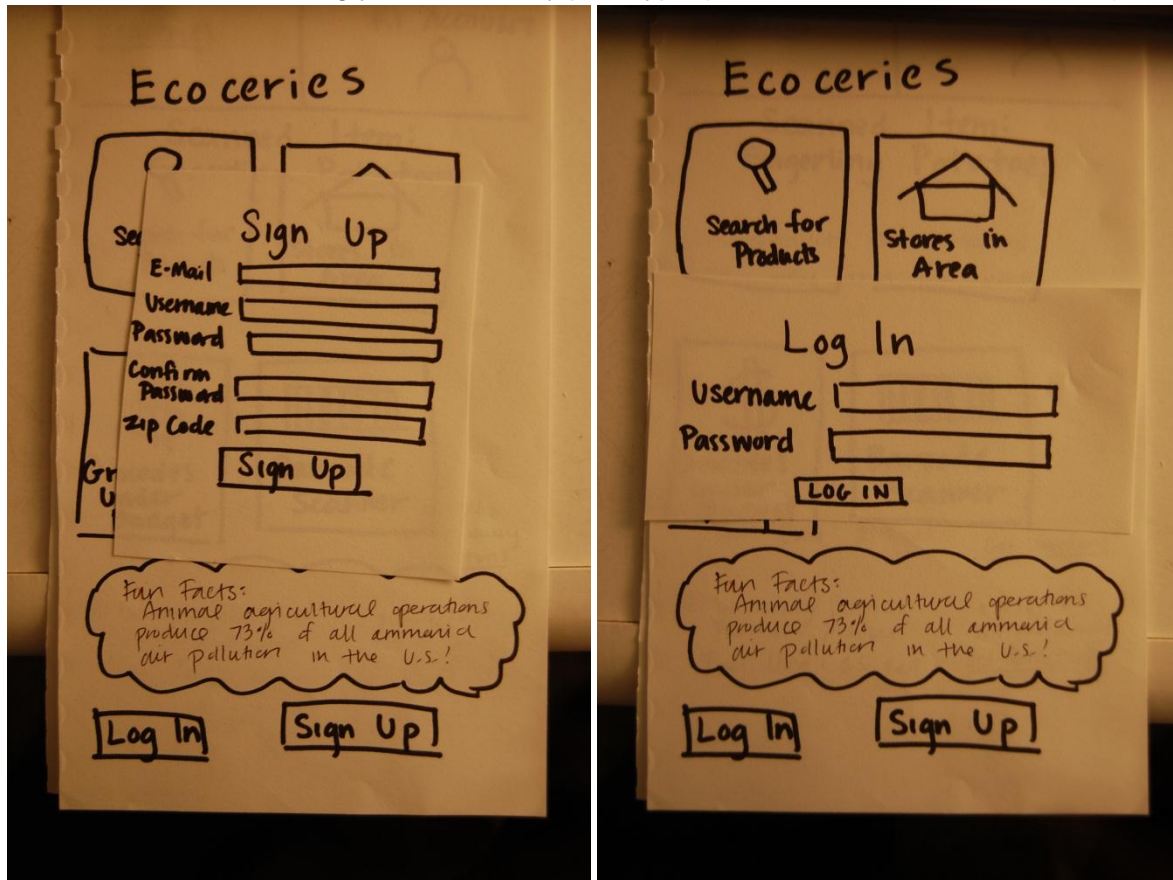 Ecoceries
Sign Up
E-Mail
Username
Password
Confirm
Password
Zip Code
Sign Up
Fun Facts:
Animal agricultural operations
produce 73% of all ammonia
air pollution in the U.S.!
Log In
Sign Up
Ecoceries
Search for
Products
Stores in
Area
Log In
Username
Password
LOG IN
Fun Facts:
Animal agricultural operations
produce 73% of all ammonia
air pollution in the U.S.!
Log In
Sign Up